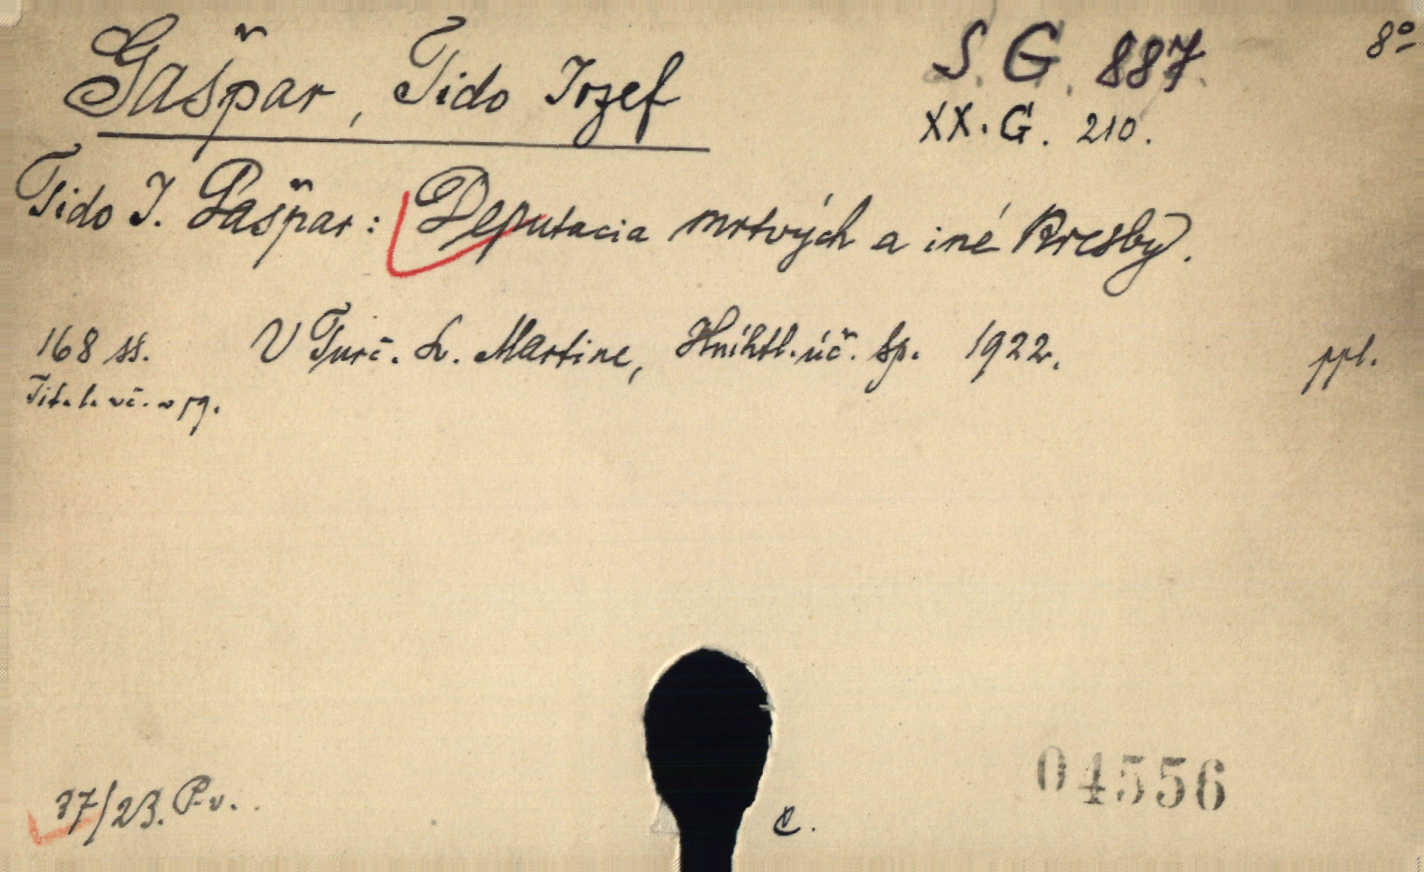 Gašpar, Tido Jozef
S. G. 887.
8º
XX. G. 210.
Tido J. Gašpar: Deputacia mrtvých a iné kresby.
168 ss. V Turč. Sv. Martine, Kníhtl. úč. sp. 1922. ppl.
Tit. l.
37/23. Pv.
c.
04556